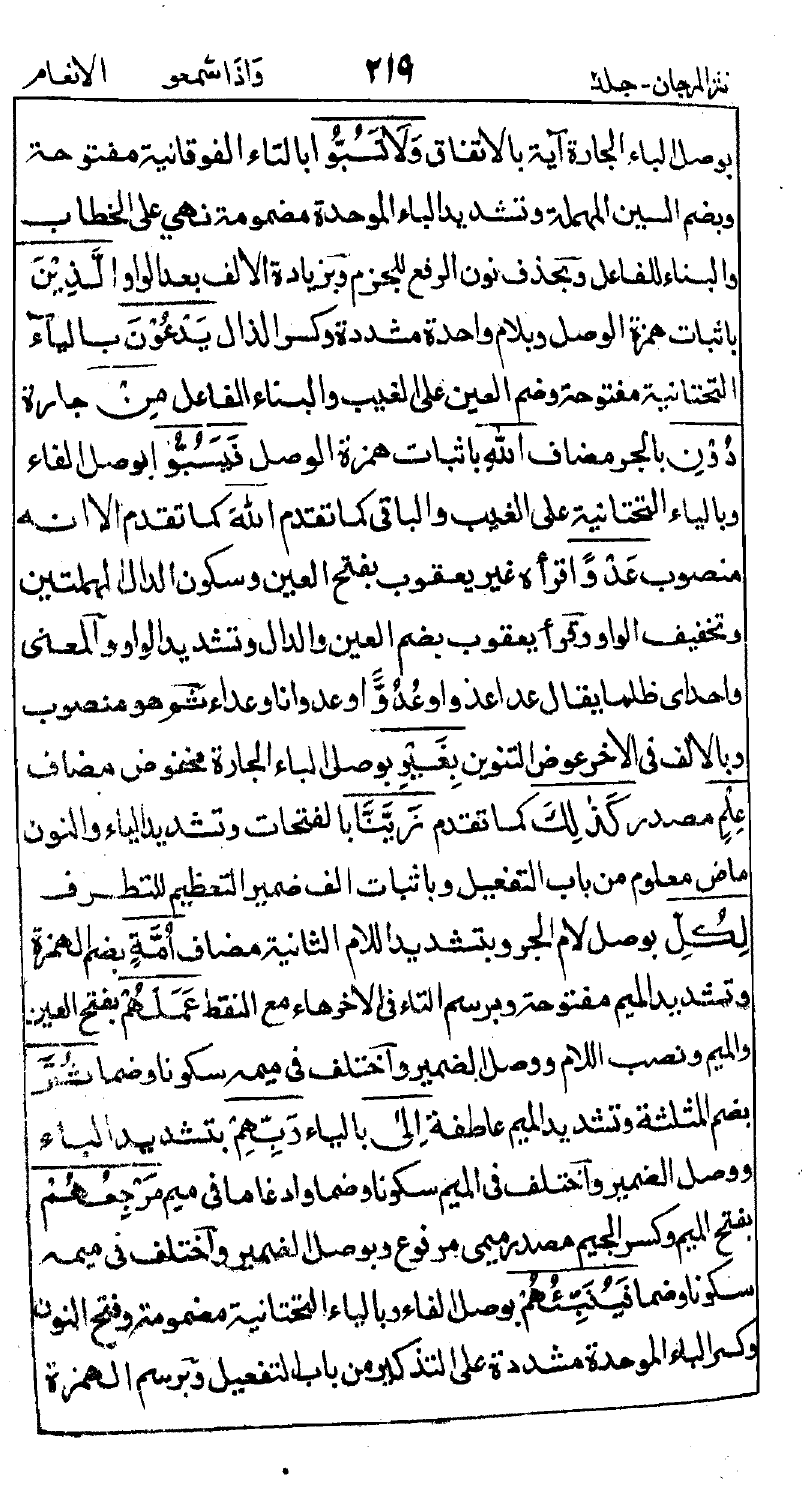 نثر المرجان - جلد ٢١٩ واذا سمعوا الانعام
بوصل الباء الجارة آية بالاتفاق وَلَا تَسُبُّوا بالتاء الفوقانية مفتوحة
وبضم السين المهملة وتشديد الباء الموحدة مضمومة نهي على الخطاب
والبناء للفاعل وبحذف نون الرفع للجزم وبزيادة الالف بعد الواو الَّذِيْنَ
باثبات همزة الوصل وبلام واحدة مشددة وكسر الذال يَدْعُوْنَ بالياء
التحتانية مفتوحة وضم العين على الغيب والبناء للفاعل مِنْ جارة
دُوْنِ بالجر مضاف اللهِ باثبات همزة الوصل فَيَسُبُّوا بوصل الفاء
وبالياء التحتانية على الغيب والباقى كما تقدم اللهَ كما تقدم الا انه
منصوب عَدْوًا قرأه غير يعقوب بفتح العين وسكون الدال المهملتين
وتخفيف الواو وقرأ يعقوب بضم العين والدال وتشديد الواو والمعنى
واحد اى ظلما يقال عدا عدوا وعُدُوًّا وعدوانا وعداء وهو منصوب
وبالالف فى الاخر عوض التنوين بِغَيْرِ بوصل الباء الجارة مخفوض مضاف
عِلْمٍ مصدر كَذٰلِكَ كما تقدم زَيَّنَّا بالفتحات وتشديد الياء والنون
ماض معلوم من باب التفعيل وباثبات الف ضمير التعظيم للتطرف
لِكُلِّ بوصل لام الجر وبتشديد اللام الثانية مضاف اُمَّةٍ بضم الهمزة
وتشديد الميم مفتوحة وبرسم التاء فى الاخر هاء مع النقط عَمَلَهُمْ بفتح العين
والميم ونصب اللام ووصل الضمير واختلف فى ميمه سكونا وضما ثُمَّ
بضم المثلثة وتشديد الميم عاطفة اِلىٰ بالياء رَبِّهِمْ بتشديد الباء
ووصل الضمير واختلف فى الميم سكونا وضما وادغاما فى ميم مَرْجِعُهُمْ
بفتح الميم وكسر الجيم مصدر ميمى مرفوع وبوصل الضمير واختلف فى ميمه
سكونا وضما فَيُنَبِّئُهُمْ بوصل الفاء وبالياء التحتانية مضمومة وفتح النون
وكسر الباء الموحدة مشددة على التذكير من باب التفعيل وبرسم الهمزة